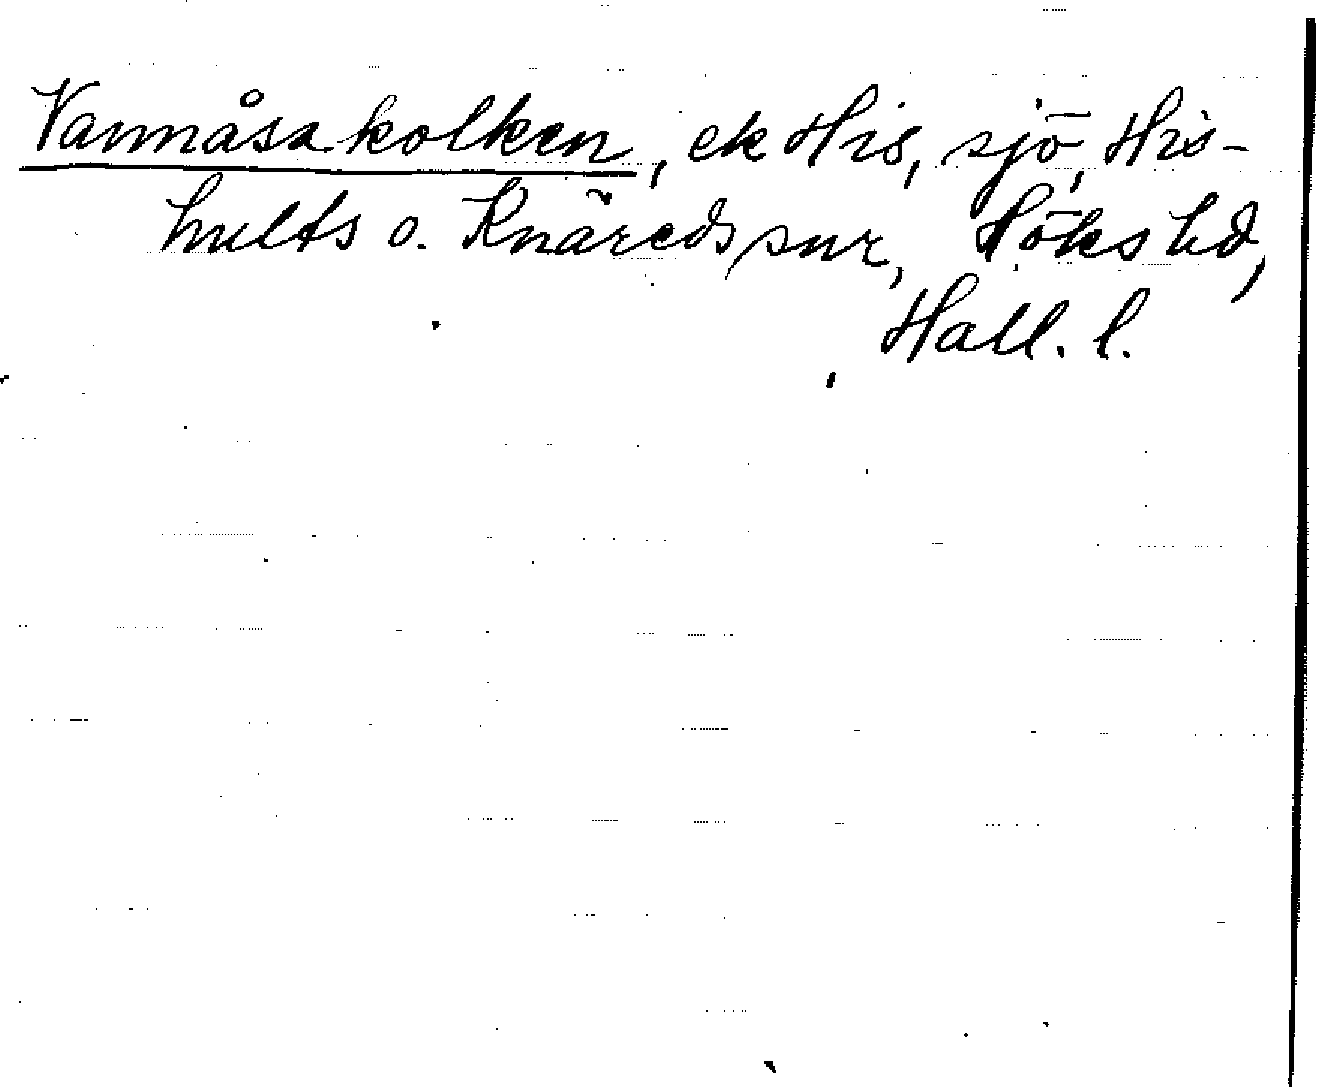 Vannåsakolken, ek His, sjö, His-
hults o. Knäreds snr, Höks hd,
Hall. l.